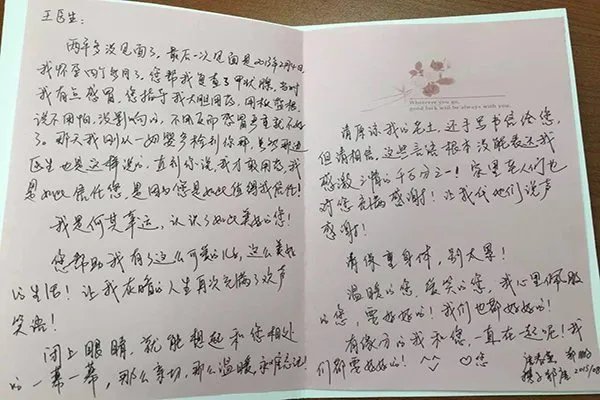 王医生：
两年多没见面了，最后一次见面是2013年2月4日，
我怀孕四个多月了，您帮我复查了甲状腺。当时
我有点感冒，您指导我大胆用药，用板蓝根，
说不用怕，没影响的，不用反而感冒严重就不好
了。那天我刚从一妇婴产检到你那，
医生也是这样说的，直到你说，我才敢用药，我
是如此信任您，是因为您是如此值得我信任！
我是何其幸运，认识了如此美好的您！
您帮助我有了这么可爱的儿子，这么美好
的生活！让我灰暗的人生再次充满了欢声
笑语！
闭上眼睛，就能想起和您相处
的一幕一幕，那么亲切，那么温暖，永难忘记！
Wherever you go,
good luck will be always with you.
请原谅我的老土，还手写书信给您，
但请相信，这些言语根本没能表达我
感激之情的千万分之一！家里老人们也
对您充满感谢！让我代他们说声
感谢！
请保重身体，别太累！
温暖的您，爱笑的您，我心里佩服
的您，要好好的！我们也都好好的！
有缘分的我和您，一直在一起呢！我
们都要好好的！^_^ ♡您
2015/08